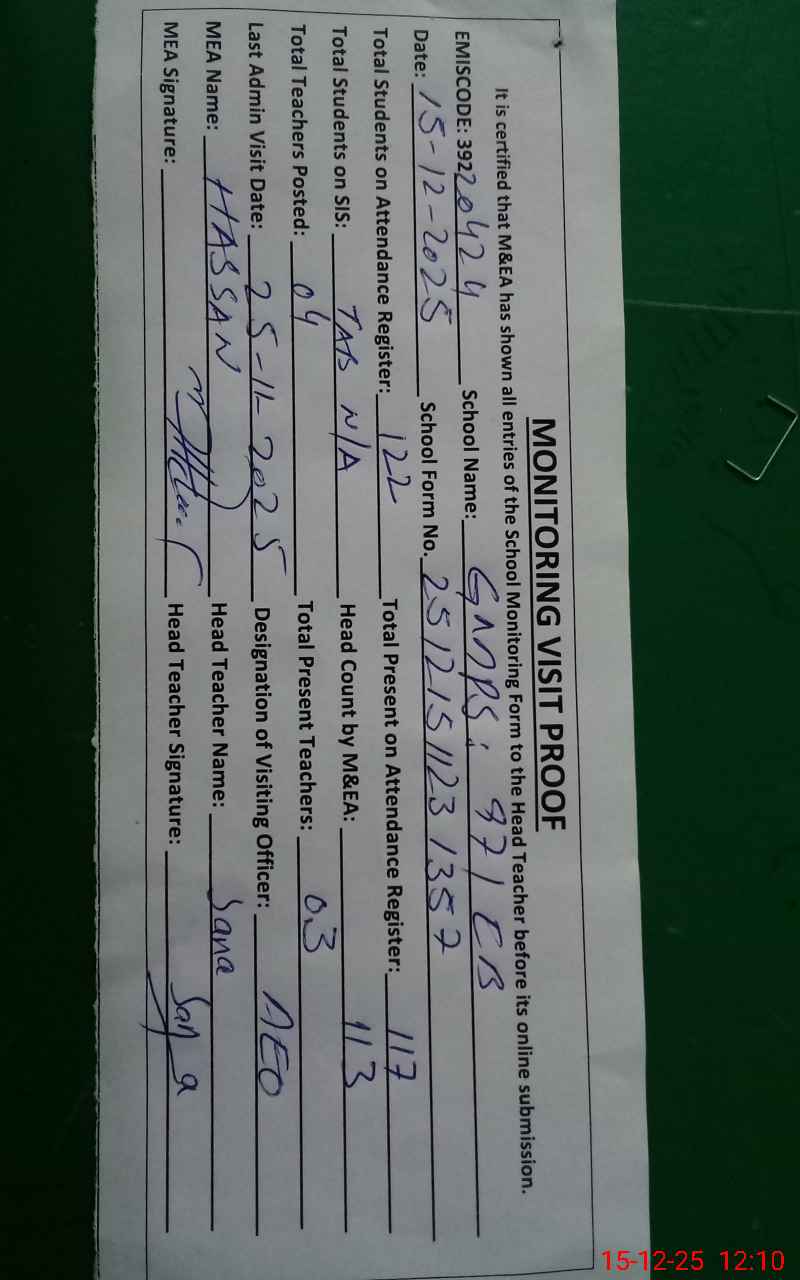 MONITORING VISIT PROOF
It is certified that M&EA has shown all entries of the School Monitoring Form to the Head Teacher before its online submission.
EMISCODE: 39220424 School Name: GMMPS: 97/CB
Date: 15-12-2025 School Form No. 2512151123 1357
Total Students on Attendance Register: 122 Total Present on Attendance Register: 117
Total Students on SIS: TAB N/A Head Count by M&EA: 113
Total Teachers Posted: 04 Total Present Teachers: 03
Last Admin Visit Date: 25-11-2025 Designation of Visiting Officer: AEO
MEA Name: HASSAN Head Teacher Name: Sana
MEA Signature: Head Teacher Signature: Sana
15-12-25 12:10